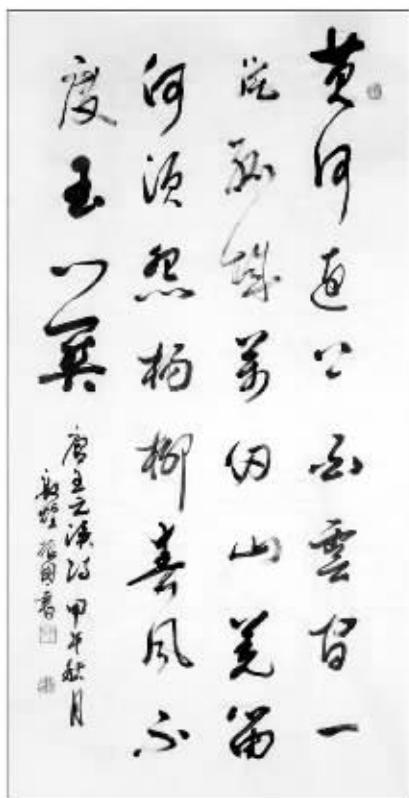 黄河遠上白雲间一
片孤城萬仞山羌笛
何須怨楊柳春風不
度玉门關
唐王之渙詩 甲午秋月
敦煌